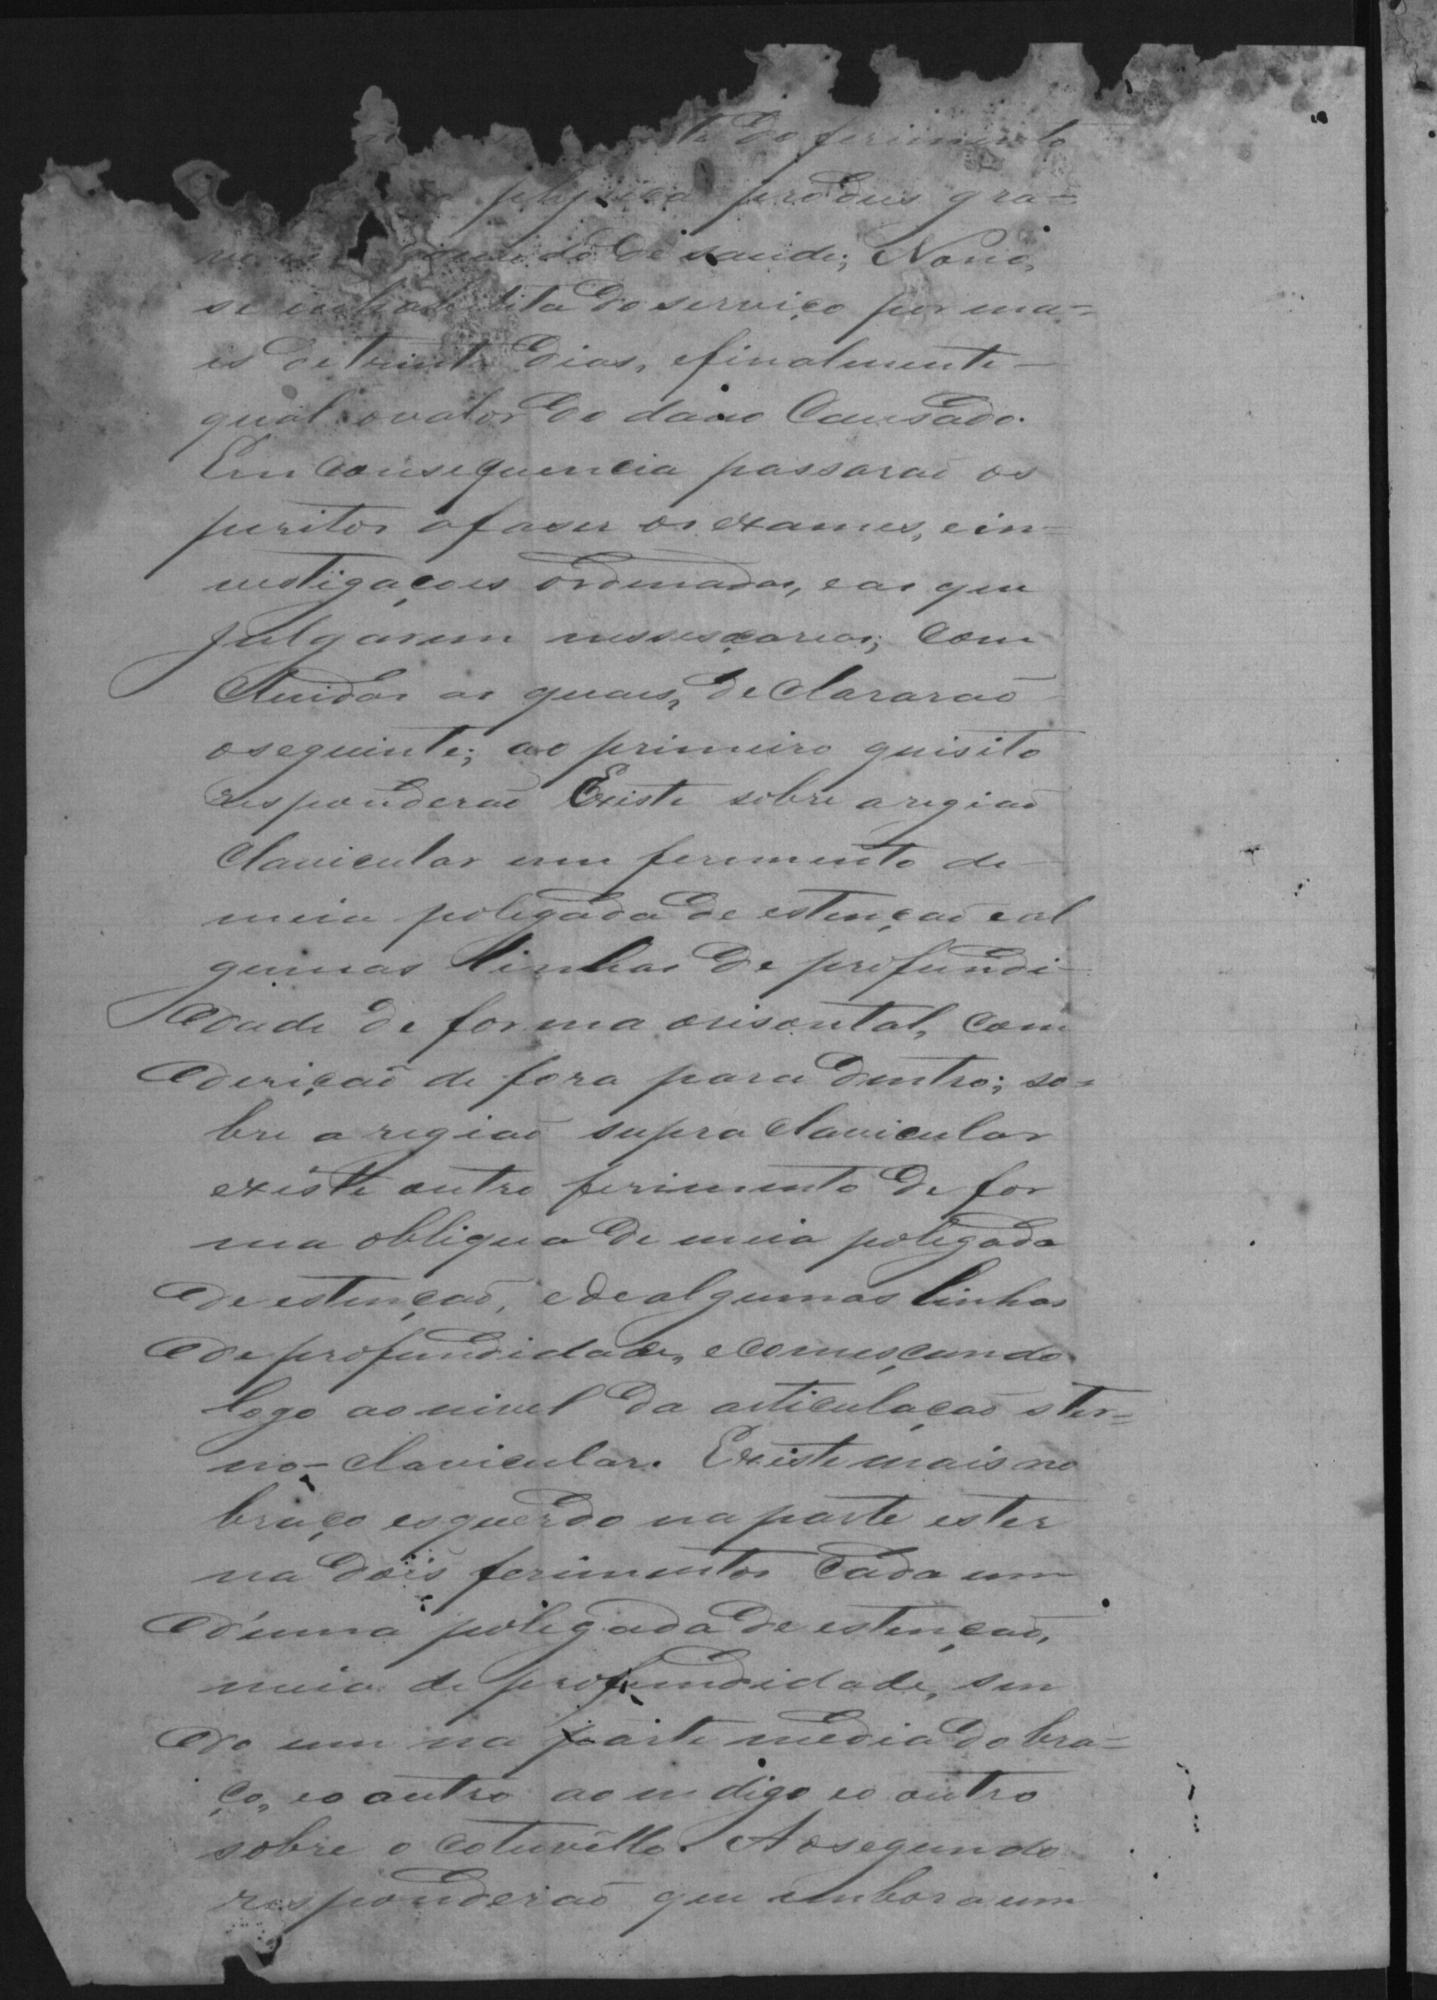 do ferimento
physica produs gra-
incommodo de saude; Nono,
se inhabilita do serviço por ma-
is de trinta dias, e finalmente
qual o valor do dano Causado.
Em Consequencia passarão os
peritos afaser os exames, ein-
vestigaçoes Ordenadas, eas que
julgarem nessescarias; Com
Cluidas as quaes, de Clararão
oseguinte; ao primeiro quisito
responderão Existe sobre aregião
Clavicular um ferimento de
meia polegada de estenção eal
gumas linhas de profundi-
dade de forma orisontal, Com
deriçaõ de fora para dentro; so-
bre a região supra Clavicular
existe outro ferimento de for
ma obliqua de meia polegada
de estenção, ede algumas linhas
de profundidade, ecomesçando
logo ao nivel da articulação ster-
no-Clavicular. Existe mais no
braço esquerdo na parte ester
na dois ferimentos Cada um
d'uma polegada de estenção,
meia de profundidade, sen
do um na parte media do bra-
ço, eo outro ao m digo eo outro
sobre o Cotuvello. Aosegundo
responderão que embora um